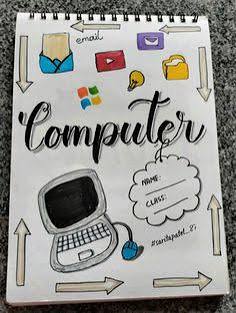 email
Computer
NAME:
CLASS:
#saritapatel_21